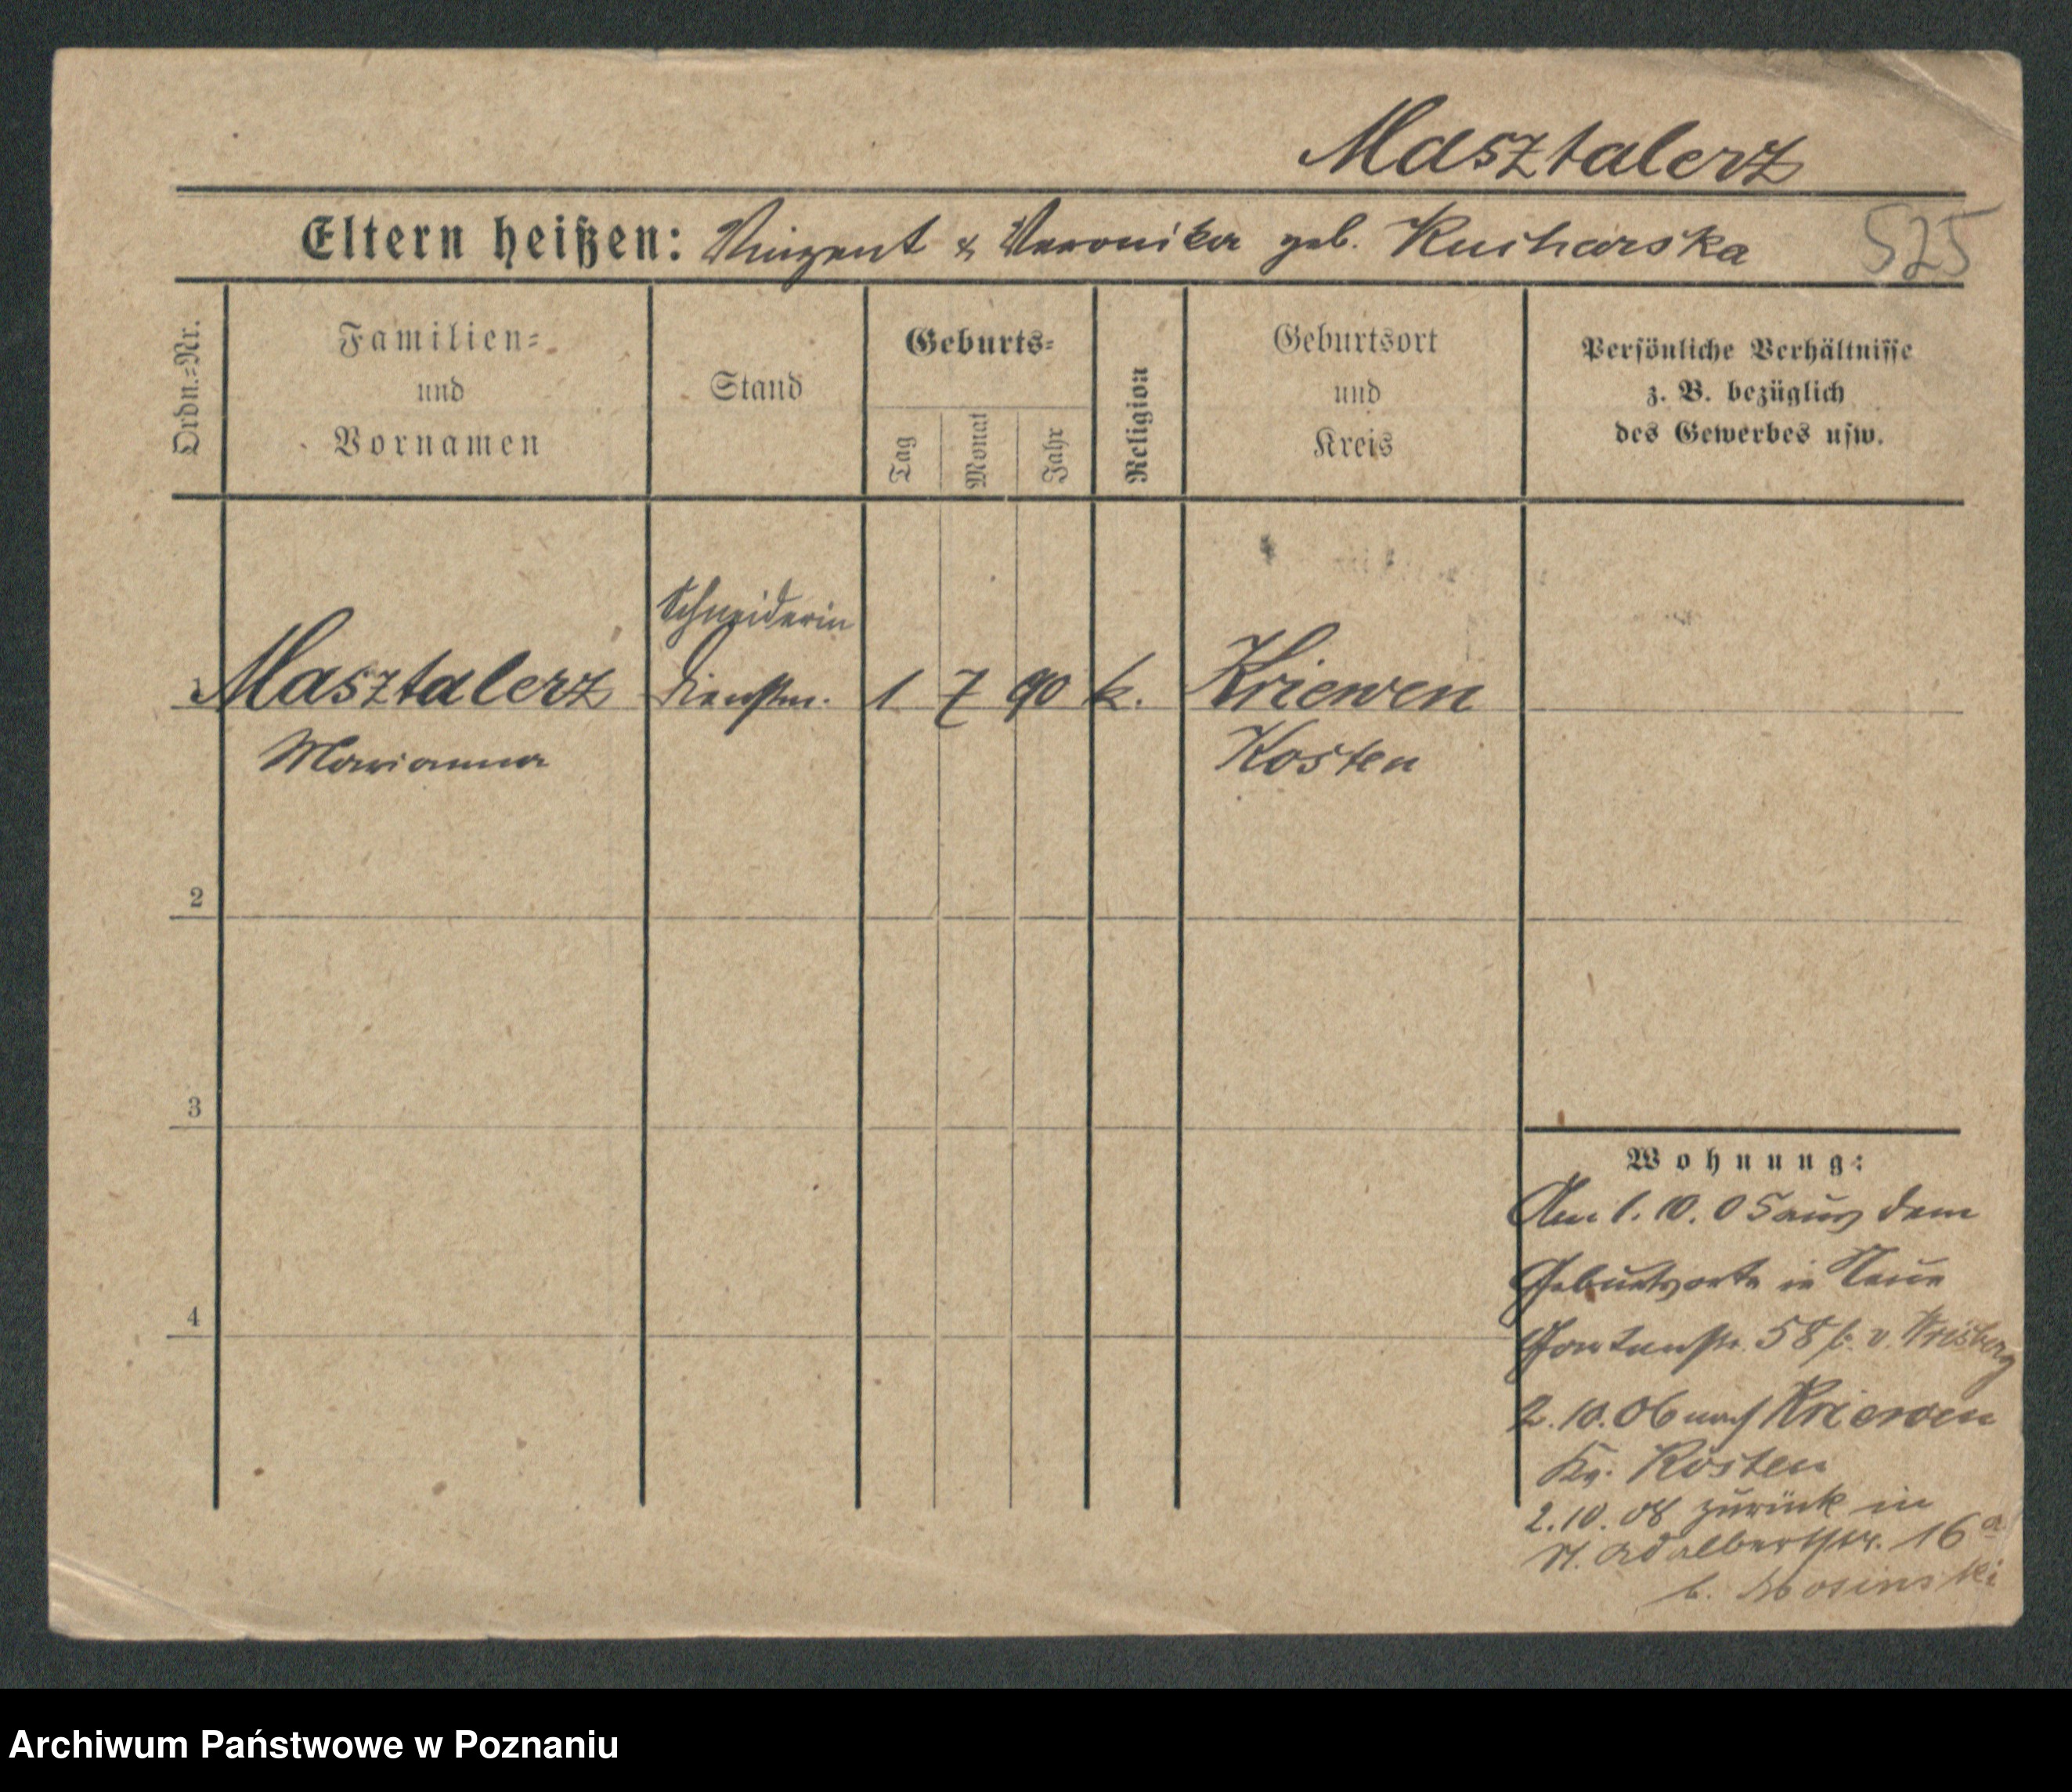 Masztalerz
Eltern heißen: Vinzent & Veronika geb. Kucharska 525
Ordn.=Nr.
Familien=
und
Vornamen
Stand
Geburts=
Tag
Monat
Jahr
Religion
Geburtsort
und
Kreis
Persönliche Verhältnisse
z. B. bezüglich
des Gewerbes usw.
Schneiderin
1 Masztalerz Dienstm. 1 7 90 k. Kriewen
Marianna Kosten
2
3
4
Wohnung:
Am 1. 10. 05 aus dem
Geburtsorte in Neue
Gartenstr. 58 b. v.
2. 10. 06 nach Kriewen
Kr. Kosten
2. 10. 08 zurück in
St. Adalbertstr. 16 a
b. Mosinski
Archiwum Państwowe w Poznaniu